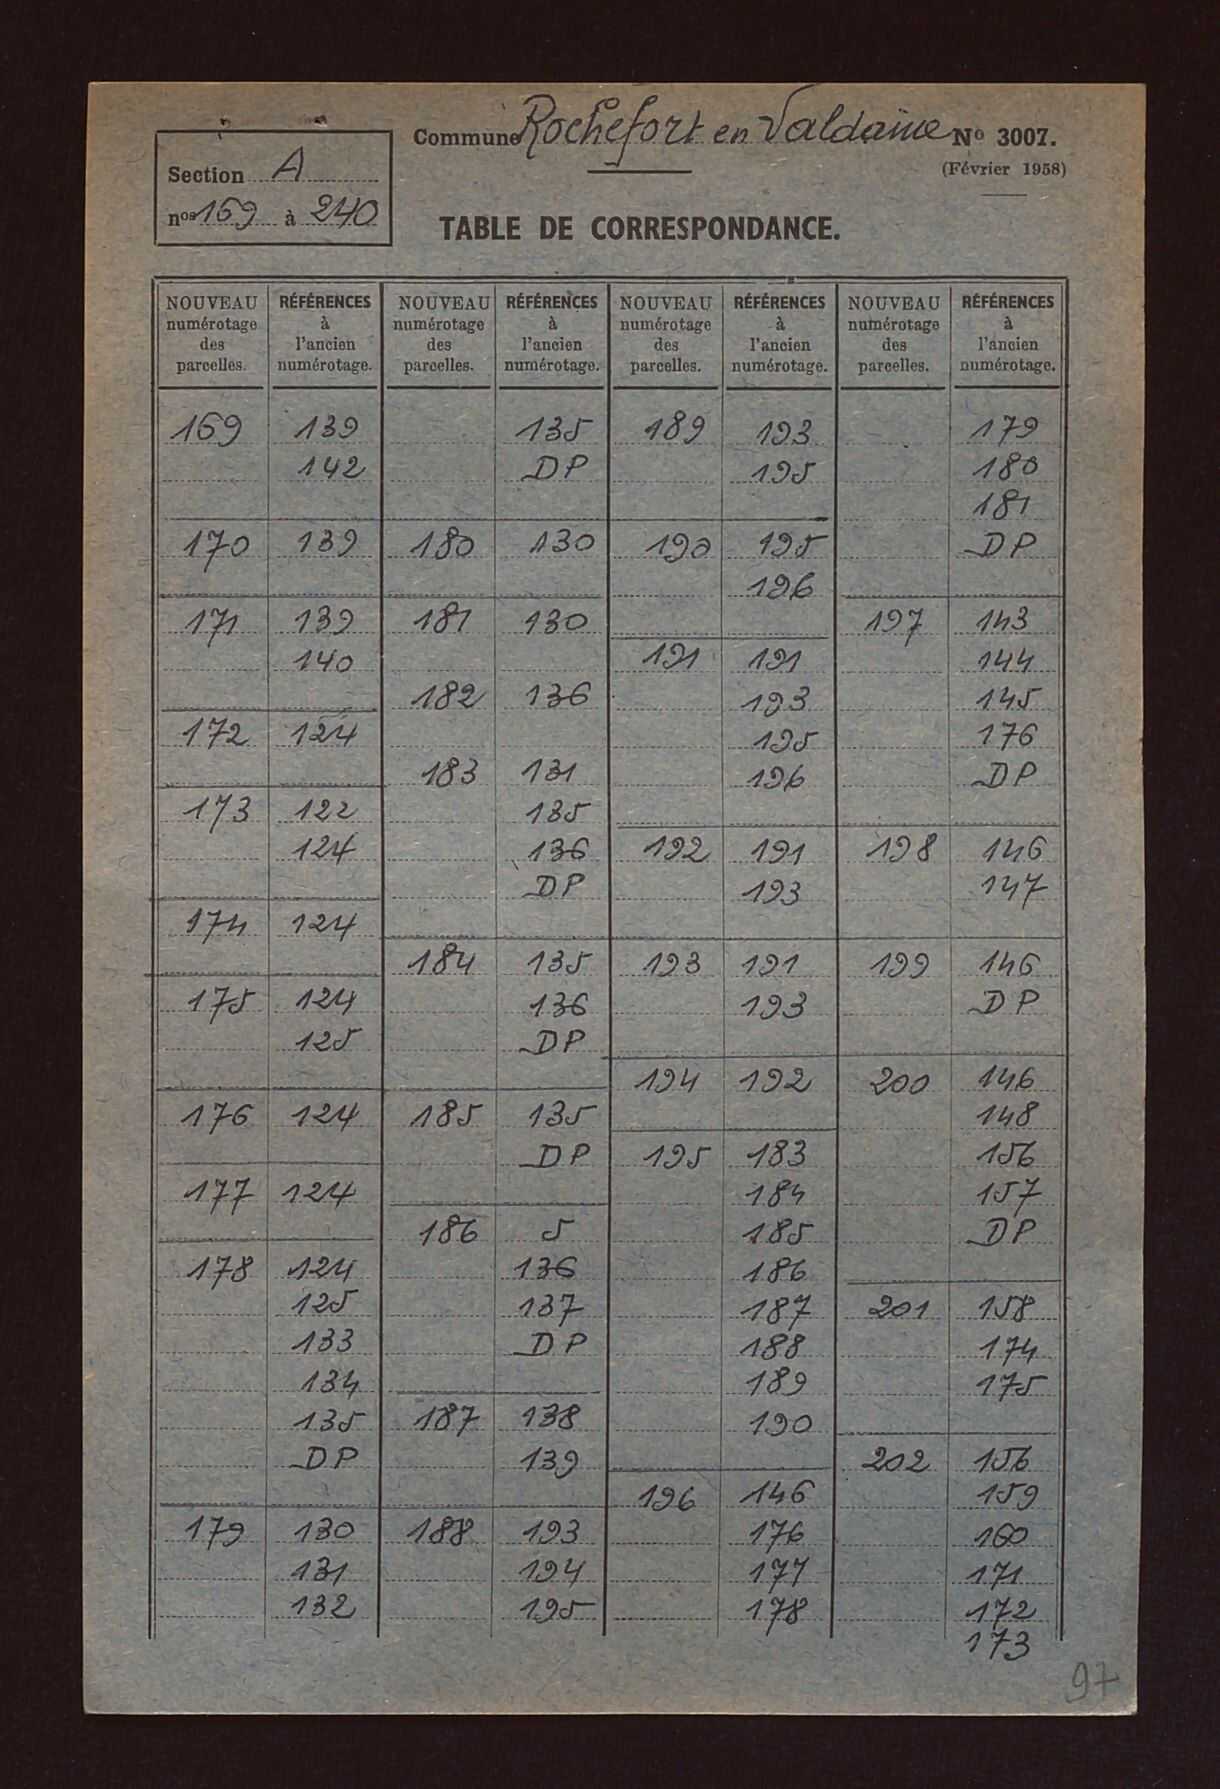 Commune Rochefort en Valdaine No 3007.
(Février 1958)
Section A
nos 169 à 240
TABLE DE CORRESPONDANCE.
NOUVEAU numérotage des parcelles. RÉFÉRENCES à l'ancien numérotage.
169 139
142
170 139
171 139
140
172 124
173 122
124
174 124
175 124
125
176 124
177 124
178 124
125
133
134
135
DP
179 130
131
132
NOUVEAU numérotage des parcelles. RÉFÉRENCES à l'ancien numérotage.
135
DP
180 130
181 130
182 136
183 131
135
136
DP
184 135
136
DP
185 135
DP
186 5
136
137
DP
187 138
139
188 193
194
195
NOUVEAU numérotage des parcelles. RÉFÉRENCES à l'ancien numérotage.
189 193
195
190 195
196
191 191
193
195
196
192 191
193
193 191
193
194 192
195 183
184
185
186
187
188
189
190
196 146
176
177
178
NOUVEAU numérotage des parcelles. RÉFÉRENCES à l'ancien numérotage.
179
180
181
DP
197 143
144
145
176
DP
198 146
147
199 146
DP
200 146
148
156
157
DP
201 158
174
175
202 156
159
160
171
172
173
97